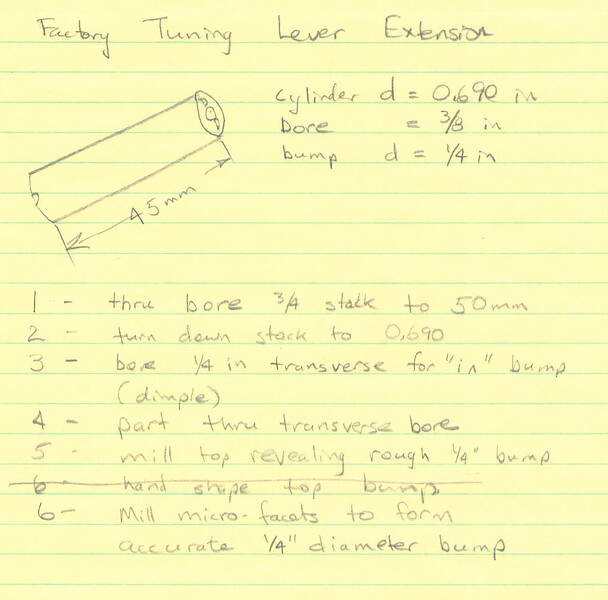 Factory Tuning Lever Extension
cylinder d = 0.690 in
bore = 3/8 in
bump d = 1/4 in
45mm
1 - thru bore 3/4 stock to 50mm
2 - turn down stock to 0.690
3 - bore 1/4 in transverse for "in" bump
(dimple)
4 - part thru transverse bore
5 - mill top revealing rough 1/4" bump
6 - hand shape top bump
6 - Mill micro-facets to form
accurate 1/4" diameter bump